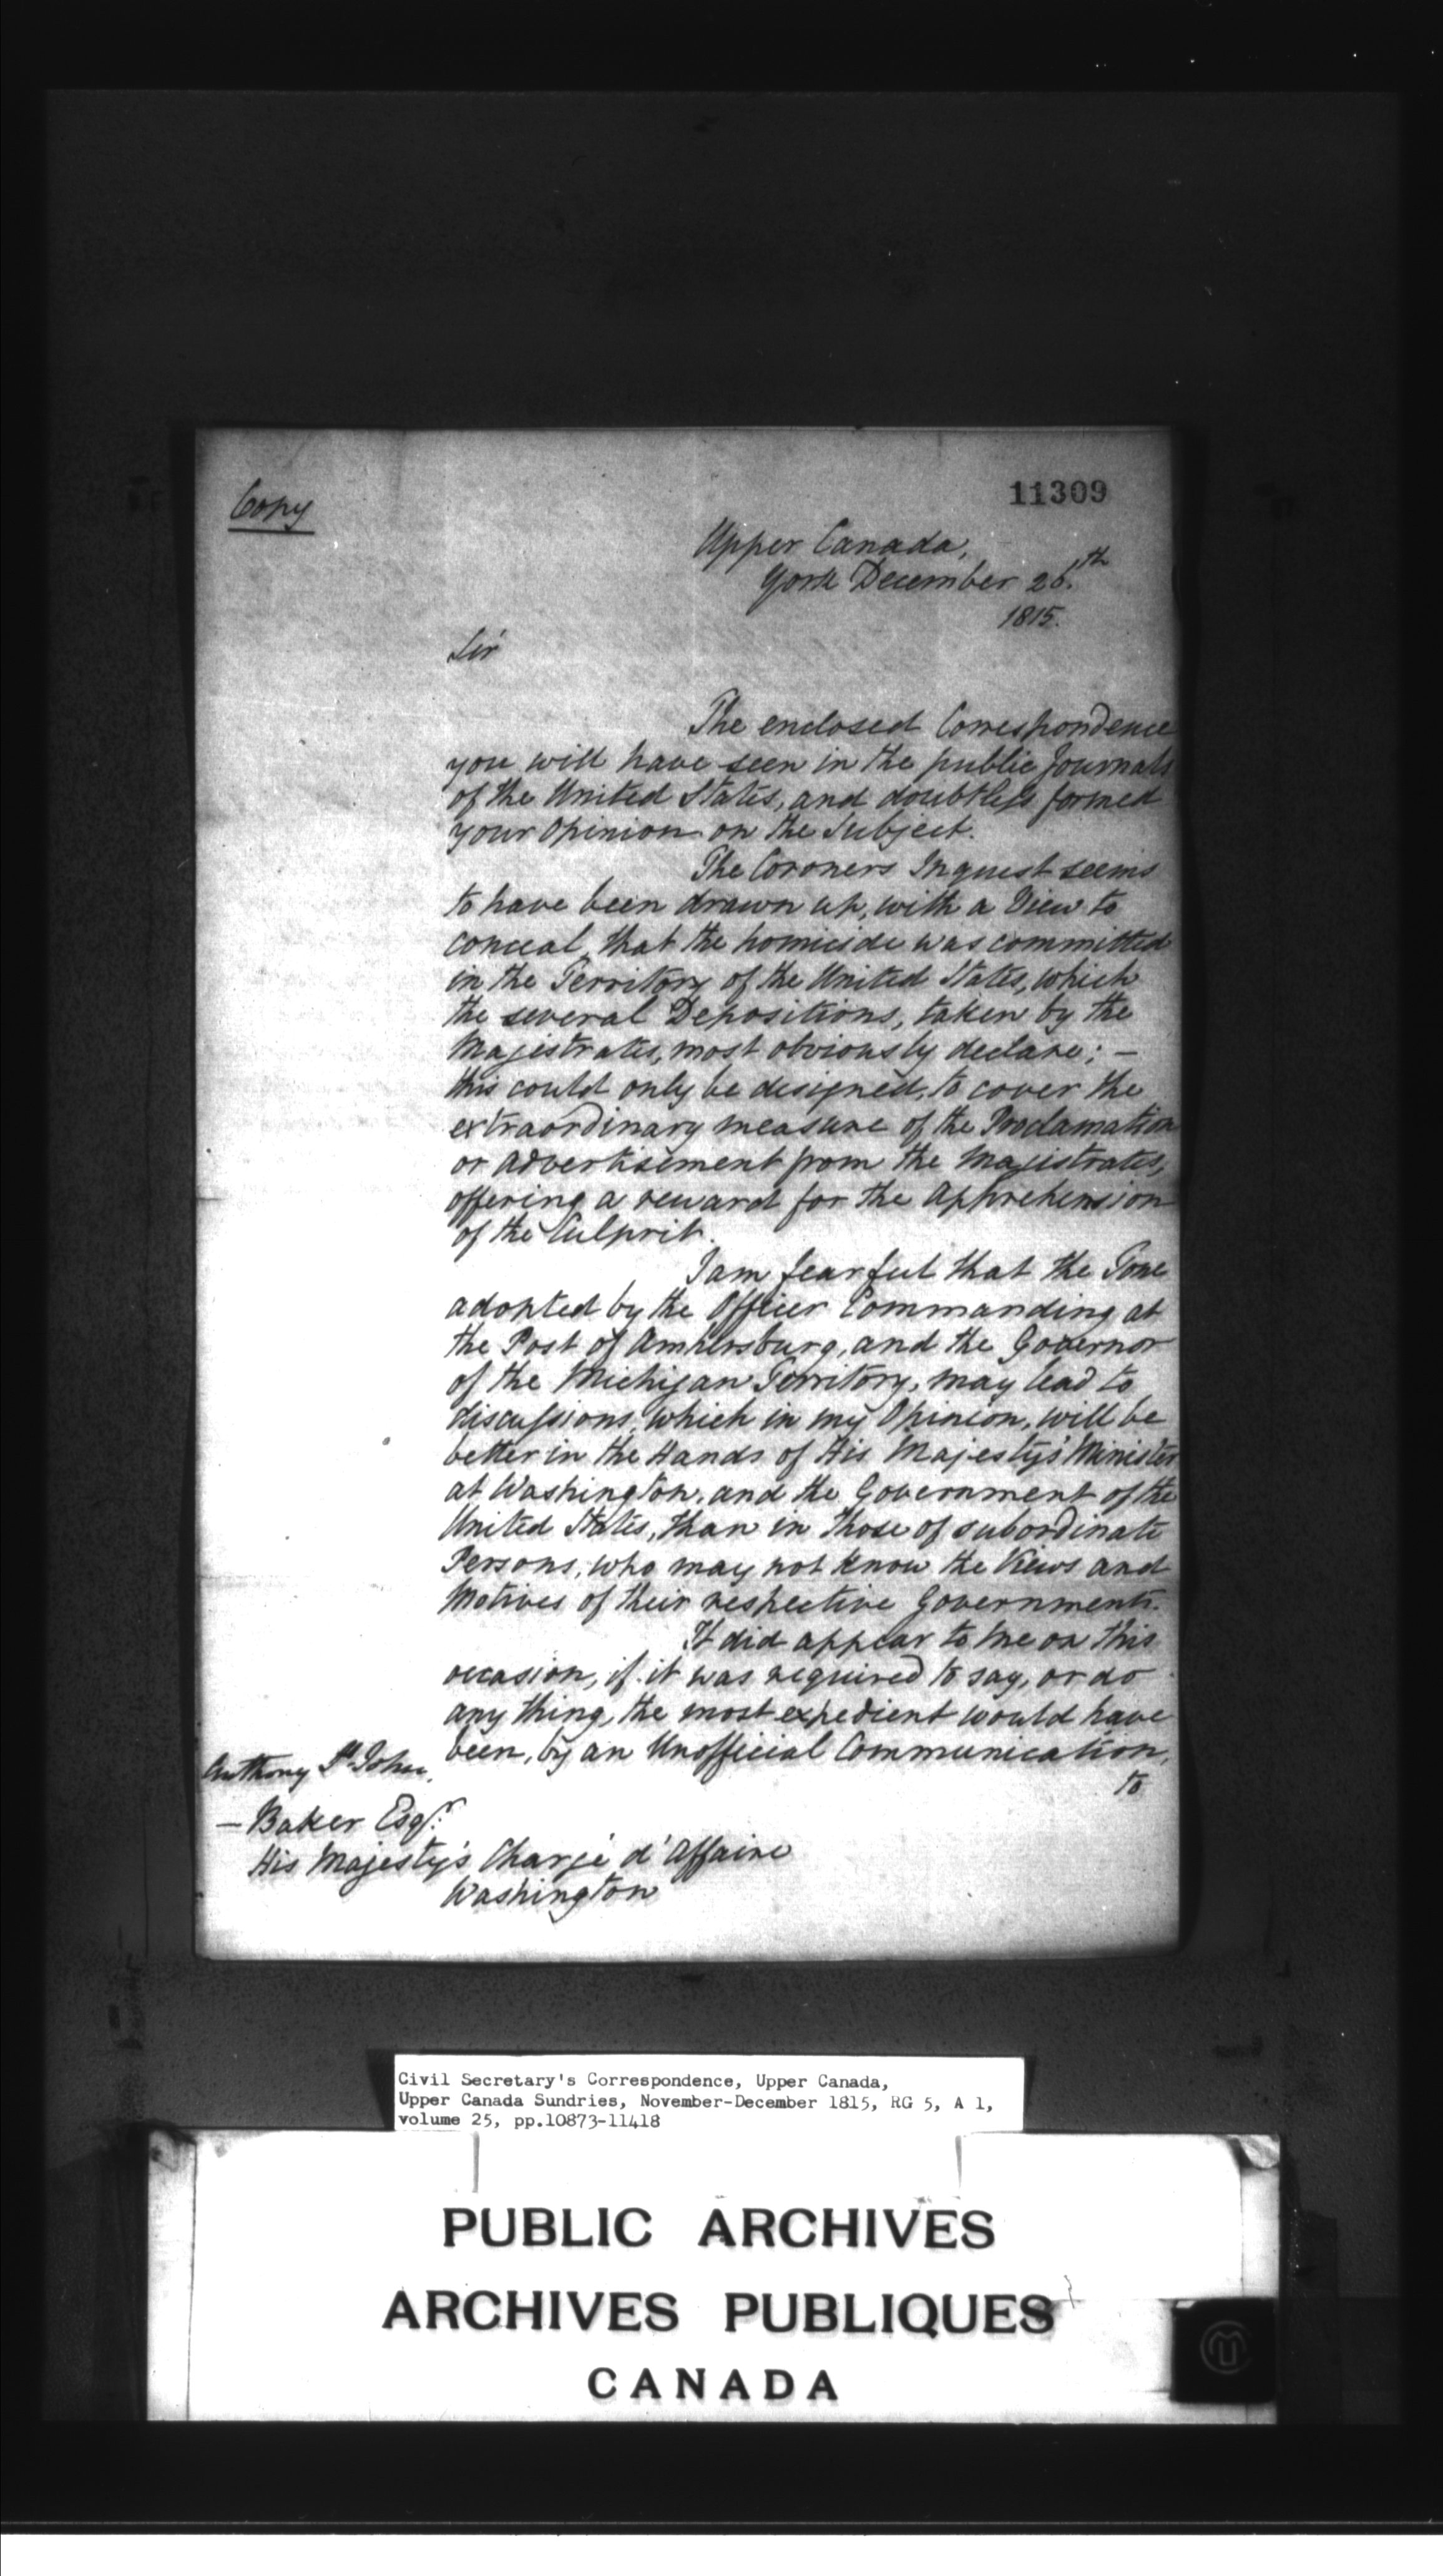 Copy
11309
Upper Canada,
York December 26.th
1815.
Sir
The enclosed Correspondence
you will have seen in the public Journals
of the United States, and doubtless formed
your Opinion on the Subject.
The Coroners Inquest seems
to have been drawn up, with a View to
conceal, that the homicide was committed
in the Territory of the United States, which
the several Depositions, taken by the
Magistrates, most obviously declare; —
this could only be designed, to cover the
extraordinary measure of the Proclamation
or advertisement from the Magistrates,
offering a reward for the Apprehension
of the Culprit.
I am fearful that the Tone
adopted by the Officer Commanding at
the Post of Amhersburg, and the Governor
of the Michigan Territory, may lead to
discussions, which in my Opinion, will be
better in the Hands of His Majesty's Minister
at Washington, and the Government of the
United States, than in those of subordinate
Persons, who may not know the Views and
Motives of their respective Governments.
It did appear to me on this
occasion, if it was required to say, or do
any thing, the most expedient would have
been, by an Unofficial Communication,
to
Anthony St. John
— Baker Esqr.
His Majesty's Chargé d'Affaire
Washington
Civil Secretary's Correspondence, Upper Canada,
Upper Canada Sundries, November-December 1815, RG 5, A 1,
volume 25, pp.10873-11418
PUBLIC ARCHIVES
ARCHIVES PUBLIQUES
CANADA